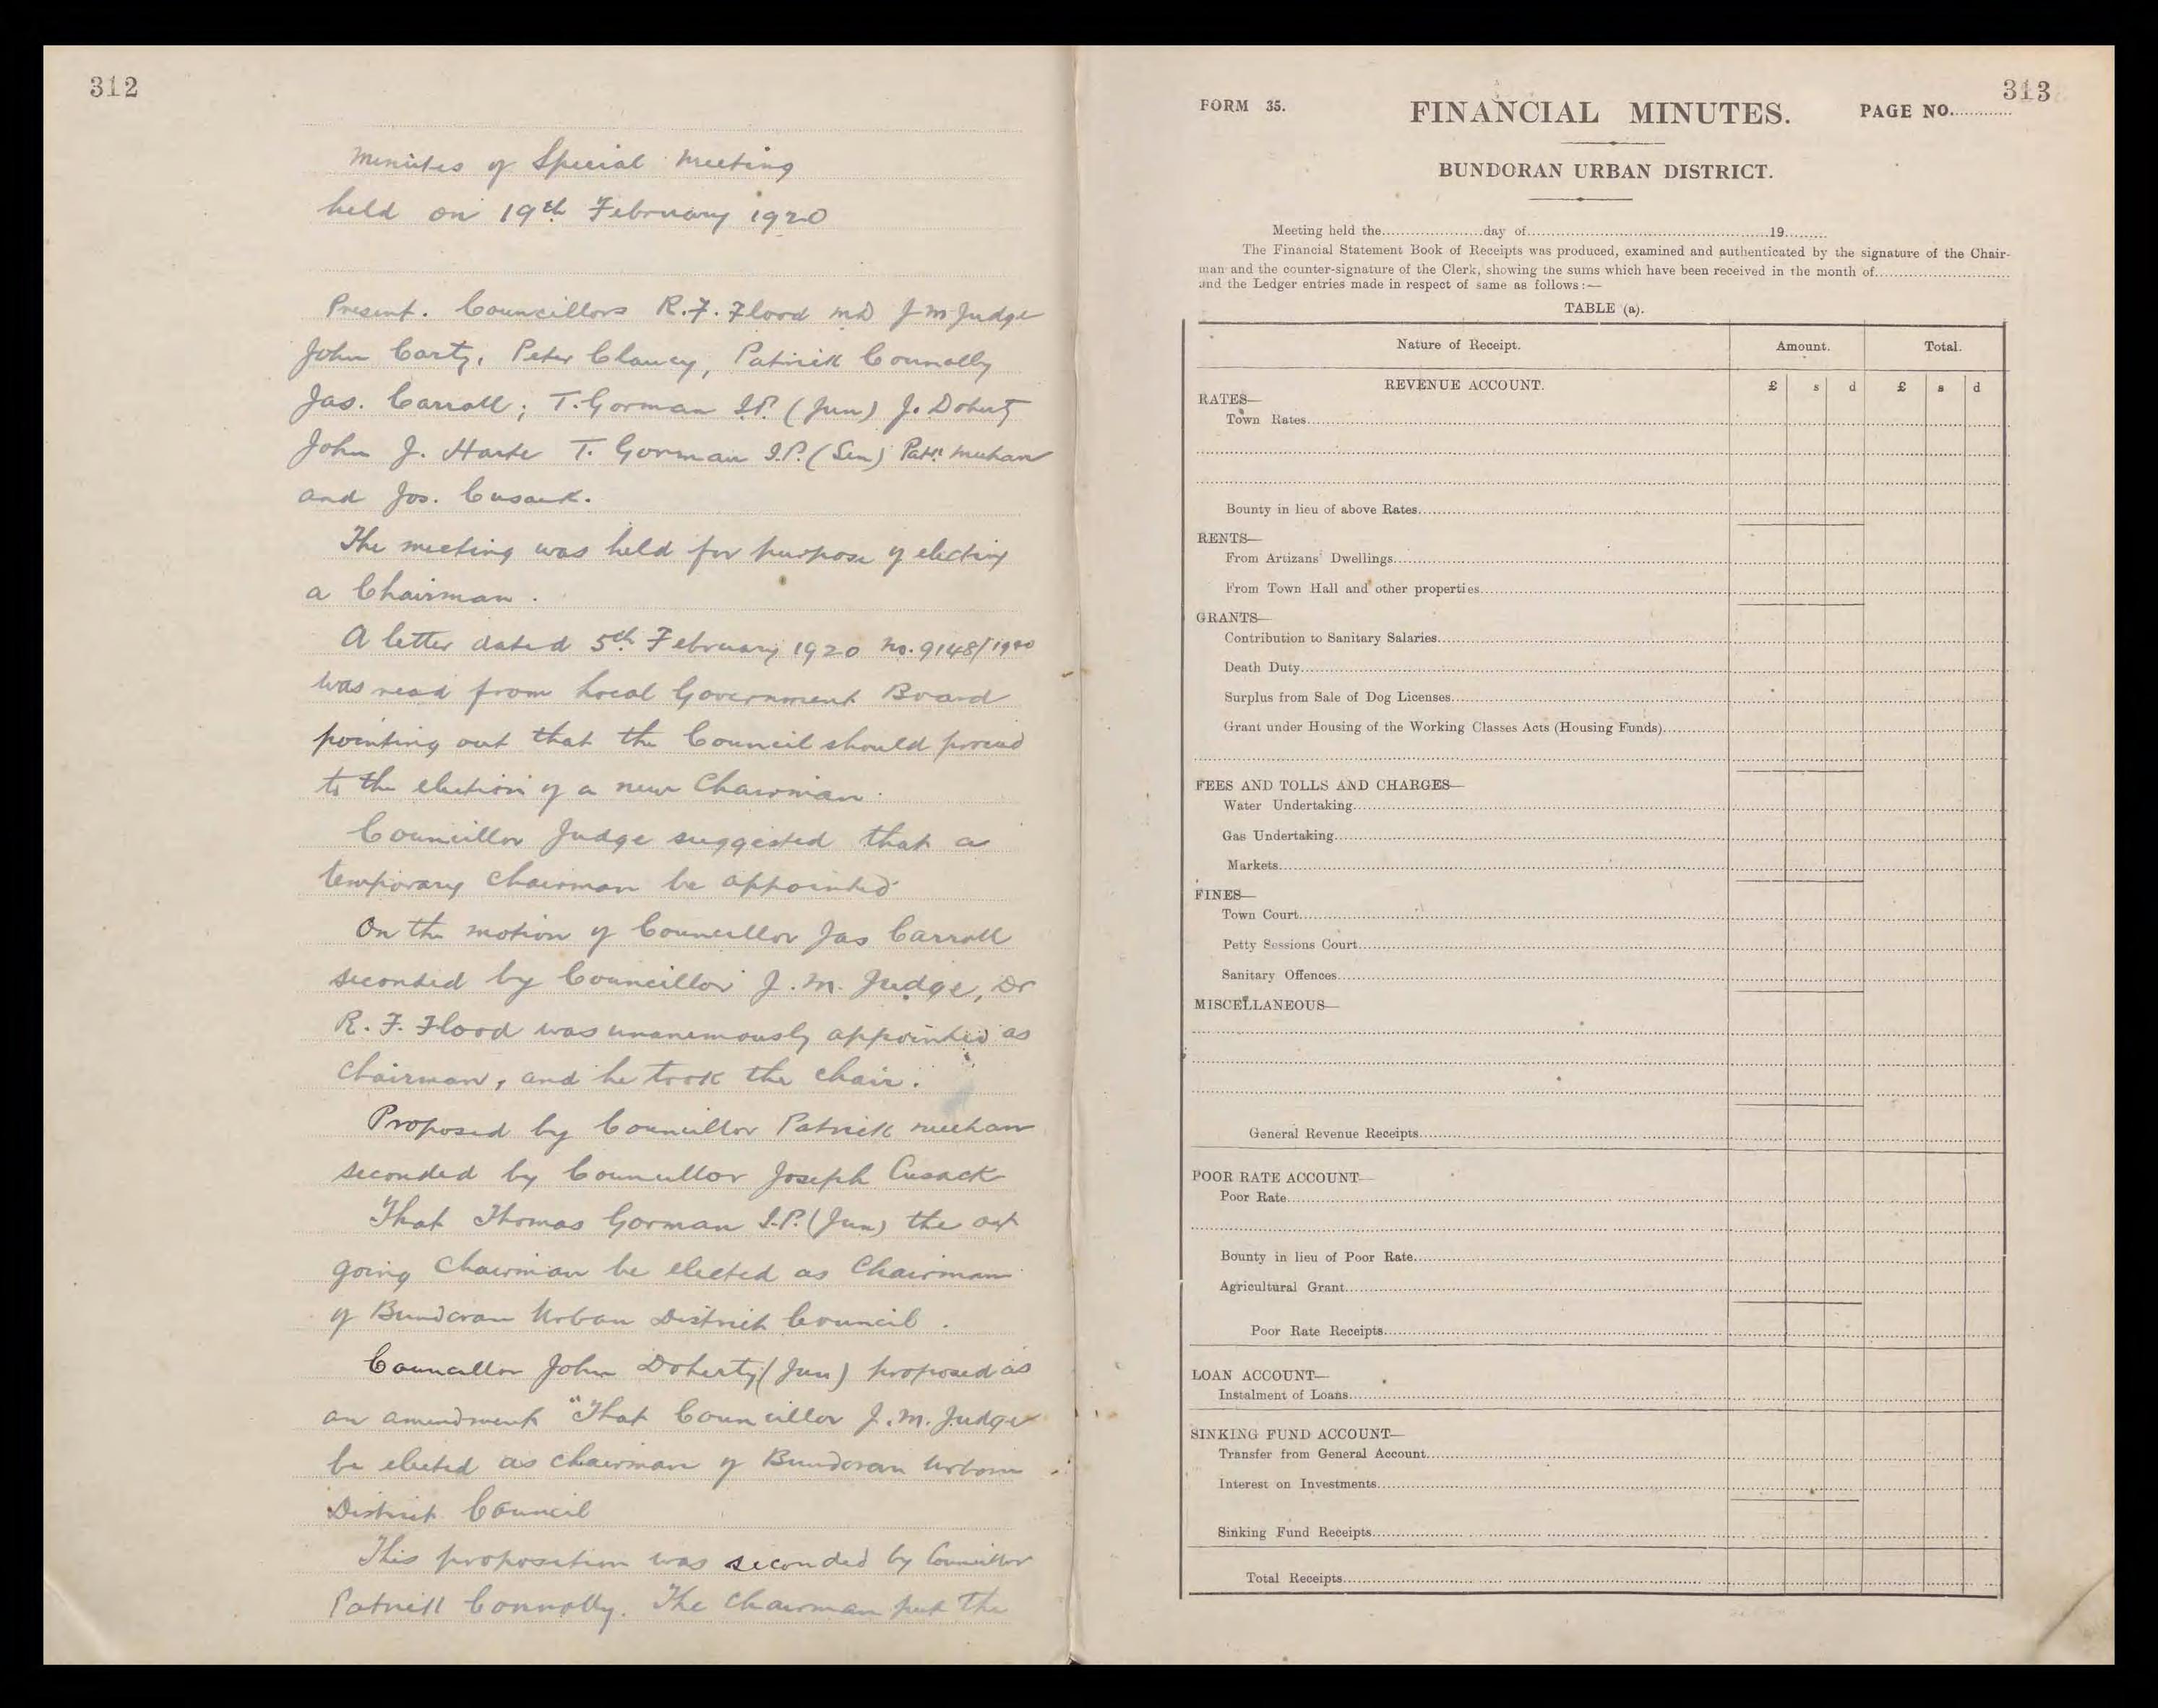 312
Minutes of Special Meeting
held on 19th February 1920
Present. Councillors R.F. Flood MD J M Judge
John Carty, Peter Clancy, Patrick Connolly
Jas. Carroll; T. Gorman J.P. (Jun) J. Doherty
John J. Harte T. Gorman J.P. (Sen) Patk Meehan
and Jos. Cusack.
The meeting was held for purpose of electing
a Chairman.
A letter dated 5th February 1920 No. 9148/1920
was read from Local Government Board
pointing out that the Council should proceed
to the election of a new Chairman.
Councillor Judge suggested that a
temporary Chairman be appointed
On the motion of Councillor Jas Carroll
seconded by Councillor J. M. Judge, Dr
R. F. Flood was unanemously appointed as
Chairman, and he took the chair.
Proposed by Councillor Patrick Meehan
seconded by Councillor Joseph Cusack
That Thomas Gorman J.P. (Jun) the out
going Chairman be elected as Chairman
of Bundoran Urban District Council.
Councillor John Doherty (Jun) proposed as
an amendment "That Councillor J. M. Judge
be elected as Chairman of Bundoran Urban
District Council
This proposition was seconded by Councillor
Patrick Connolly. The Chairman put the
313
FORM 35. FINANCIAL MINUTES. PAGE NO.
BUNDORAN URBAN DISTRICT.
Meeting held the day of 19
The Financial Statement Book of Receipts was produced, examined and authenticated by the signature of the Chair-
man and the counter-signature of the Clerk, showing the sums which have been received in the month of
and the Ledger entries made in respect of same as follows:—
TABLE (a).
Nature of Receipt. Amount. Total.
REVENUE ACCOUNT. £ s d £ s d
RATES—
Town Rates
Bounty in lieu of above Rates
RENTS—
From Artizans' Dwellings
From Town Hall and other properties
GRANTS—
Contribution to Sanitary Salaries
Death Duty
Surplus from Sale of Dog Licenses
Grant under Housing of the Working Classes Acts (Housing Funds)
FEES AND TOLLS AND CHARGES—
Water Undertaking
Gas Undertaking
Markets
FINES—
Town Court
Petty Sessions Court
Sanitary Offences
MISCELLANEOUS—
General Revenue Receipts
POOR RATE ACCOUNT—
Poor Rate
Bounty in lieu of Poor Rate
Agricultural Grant
Poor Rate Receipts
LOAN ACCOUNT—
Instalment of Loans
SINKING FUND ACCOUNT—
Transfer from General Account
Interest on Investments
Sinking Fund Receipts
Total Receipts